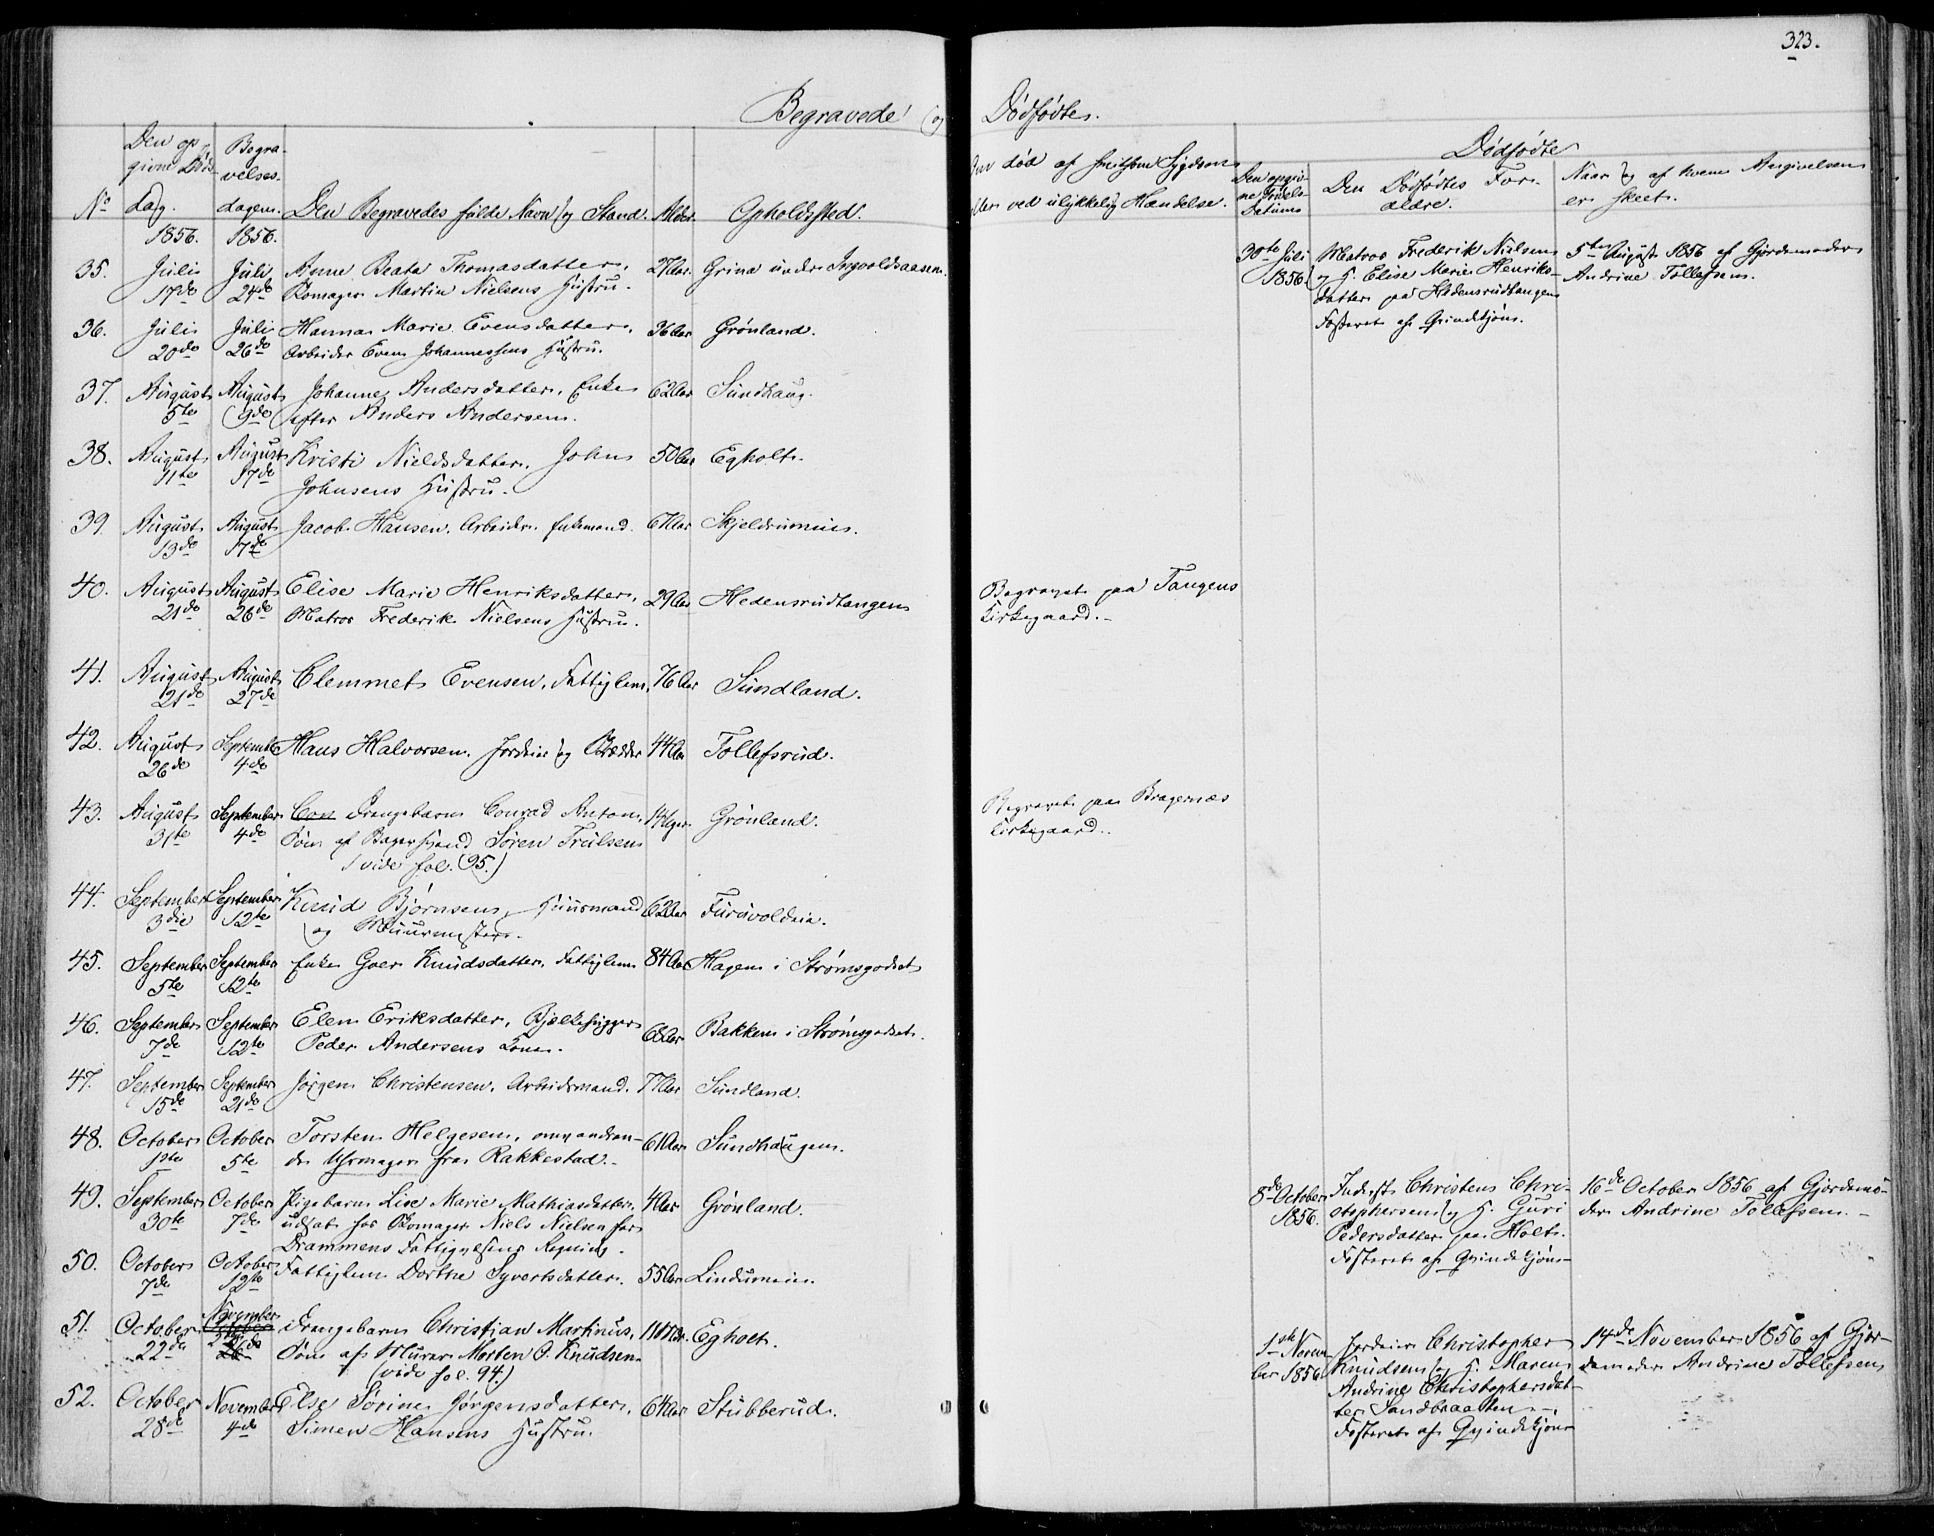 323.
Begravede og Dødfødte.
Den op-
givne Døds-
Dag.
1856.
Begra-
velses-
dagen.
1856.
No
Den Begravedes fulde Navn og Stand.
Alder.
Opholdssted.
Om død af smitsom Sygdom
eller ved ulykkelig Hændelse.
Dødfødte
Den opgiv-
ne Fødsels-
Datum
Den Dødfødtes For-
ældre.
Naar og af hvem Angivelsen
er skeet.
35. Juli 17de Juli 24de Anne Beata Thomasdatter, 27 Aar. Grina under Ingvoldsaasen.
Komager Martin Nielsens Hustru.
36. Juli 20de Juli 26de Hanna Marie Evensdatter, 36 Aar Grønland.
Arbeider Even Johannessens Hustru.
37. August 5te August 9de Johanne Andersdatter, Enke 62 Aar Sundhaug.
efter Anders Andersen.
38. August 11te August 17de Kristi Nielsdatter, John 50 Aar Egholt.
Johnsens Hustru.
39. August 13de August 17de Jacob Hansen, Arbeider, Enkemand. 67 Aar Skjeldrumeie.
40. August 21de August 26de Elise Marie Henriksdatter, 29 Aar Hedensrudtangen
Matros Frederik Nielsens Hustru.
41. August 21de August 27de Clemmet Evensen, Fattiglem, 76 Aar Sundland.
42. August 26de September 4de Hans Halvorsen, Jordeier og 44 Aar Tollefsrud.
43. August 31te September 4de Con Drengebarn Conrad Anton, 14 Uger Grønland.
Søn af Bagersvend Søren Trulsen
(vide fol. 95.)
44. September 3die September 12te Knud Bjørnsen, Huusmand 62 Aar Furuvoldeie.
og Muurmester.
45. September 5te September 12te Enke Goer Knudsdatter, Fattiglem 84 Aar Hagen i Strømsgodset
46. September 7de September 12te Elen Eriksdatter, Bjelkehugger 68 Aar Bakken i Strømsgodset.
Peder Andersens Kone.
47. September 15de September 21de Jørgen Christensen, Arbeidsmand. 77 Aar Sundland.
48. October 1ste October 5te Torsten Helgesen, omvandren- 61 Aar Sundhaugen.
de Uhrmager fra Rakkestad.
49. September 30te October 7de Pigebarn Lise Marie Mathiasdatter, 4 Aar Grønland.
udsat hos Komager Niels Nielsen for
Drammens Fattigvæsens Regning.
50. October 7de October 12te Fattiglem Dorthe Syvertsdatter. 55 Aar Lindumeie.
51. October 22de November Drengebarn Christian Martinus, Egholt.
Søn af Murer Morten O. Knudsen
(vide fol. 94.)
52. October 28de November 4de Else Sørine Jørgensdatter, 64 Aar Stubberud.
Simen Hansens Hustru.
Begravet paa Tangens
Kirkegaard.
Begravet paa Bragernæs
Kirkegaard.
30te Juli
1856.
Matros Frederik Nielsen
og H. Elise Marie Henriks-
datter paa Hedensrudtangen
Fosteret af Qvindekjøn.
5te August 1856 af Gjordemoder
Andrine Tollefsen.
8de October
1856.
Inderst Christen Chri-
stophersen og H. Guri
Pedersdatter paa Holt.
Fosteret af Qvindekjøn
16de October 1856 af Gjordemo-
der Andrine Tollefsen.
1ste Novem-
ber 1856
Jordeier Christopher
Knudsen og H. Maren
Andrine Christophersdat-
ter Sandbraaten.
Fosteret af Qvindekjøn
14de November 1856 af Gjor-
demoder Andrine Tollefsen